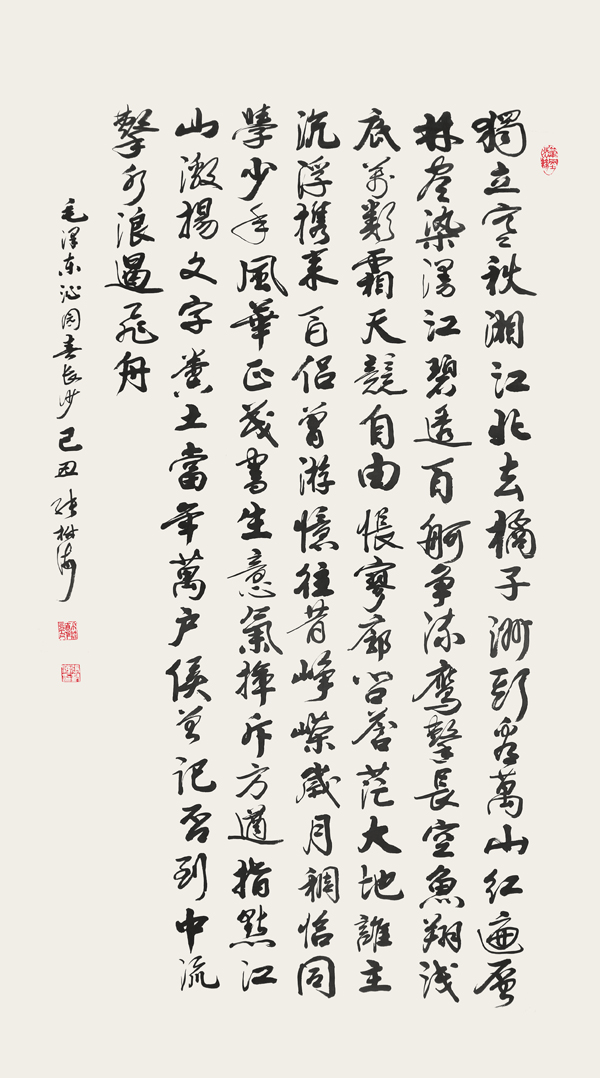 獨立寒秋湘江北去橘子洲頭看萬山紅遍層
林盡染漫江碧透百舸爭流鷹擊長空魚翔浅
底萬類霜天競自由悵寥廓問蒼茫大地誰主
沉浮携來百侶曾游憶往昔崢嶸歲月稠恰同
學少年風華正茂書生意氣揮斥方遒指點江
山激揚文字糞土當年萬户侯曾記否到中流
擊水浪遏飛舟
毛澤東沁园春長沙己丑